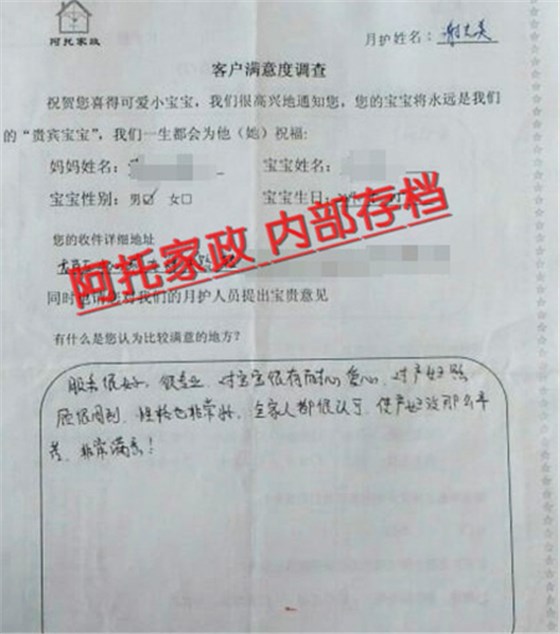 阿托家政
月护姓名：谢大美
客户满意度调查
祝贺您喜得可爱小宝宝，我们很高兴地通知您，您的宝宝将永远是我们
的“贵宾宝宝”，我们一生都会为他（她）祝福:
妈妈姓名：
宝宝姓名：
宝宝性别：男☑ 女□
宝宝生日：
阿托家政 内部存档
您的收件详细地址
同时 您对我们的月护人员提出宝贵意见
有什么是您认为比较满意的地方？
服务很好，很专业，对宝宝很有耐心，爱心，对产妇照
顾很周到，性格也非常好，全家人都很认可，使产妇没那么辛
苦，非常满意！